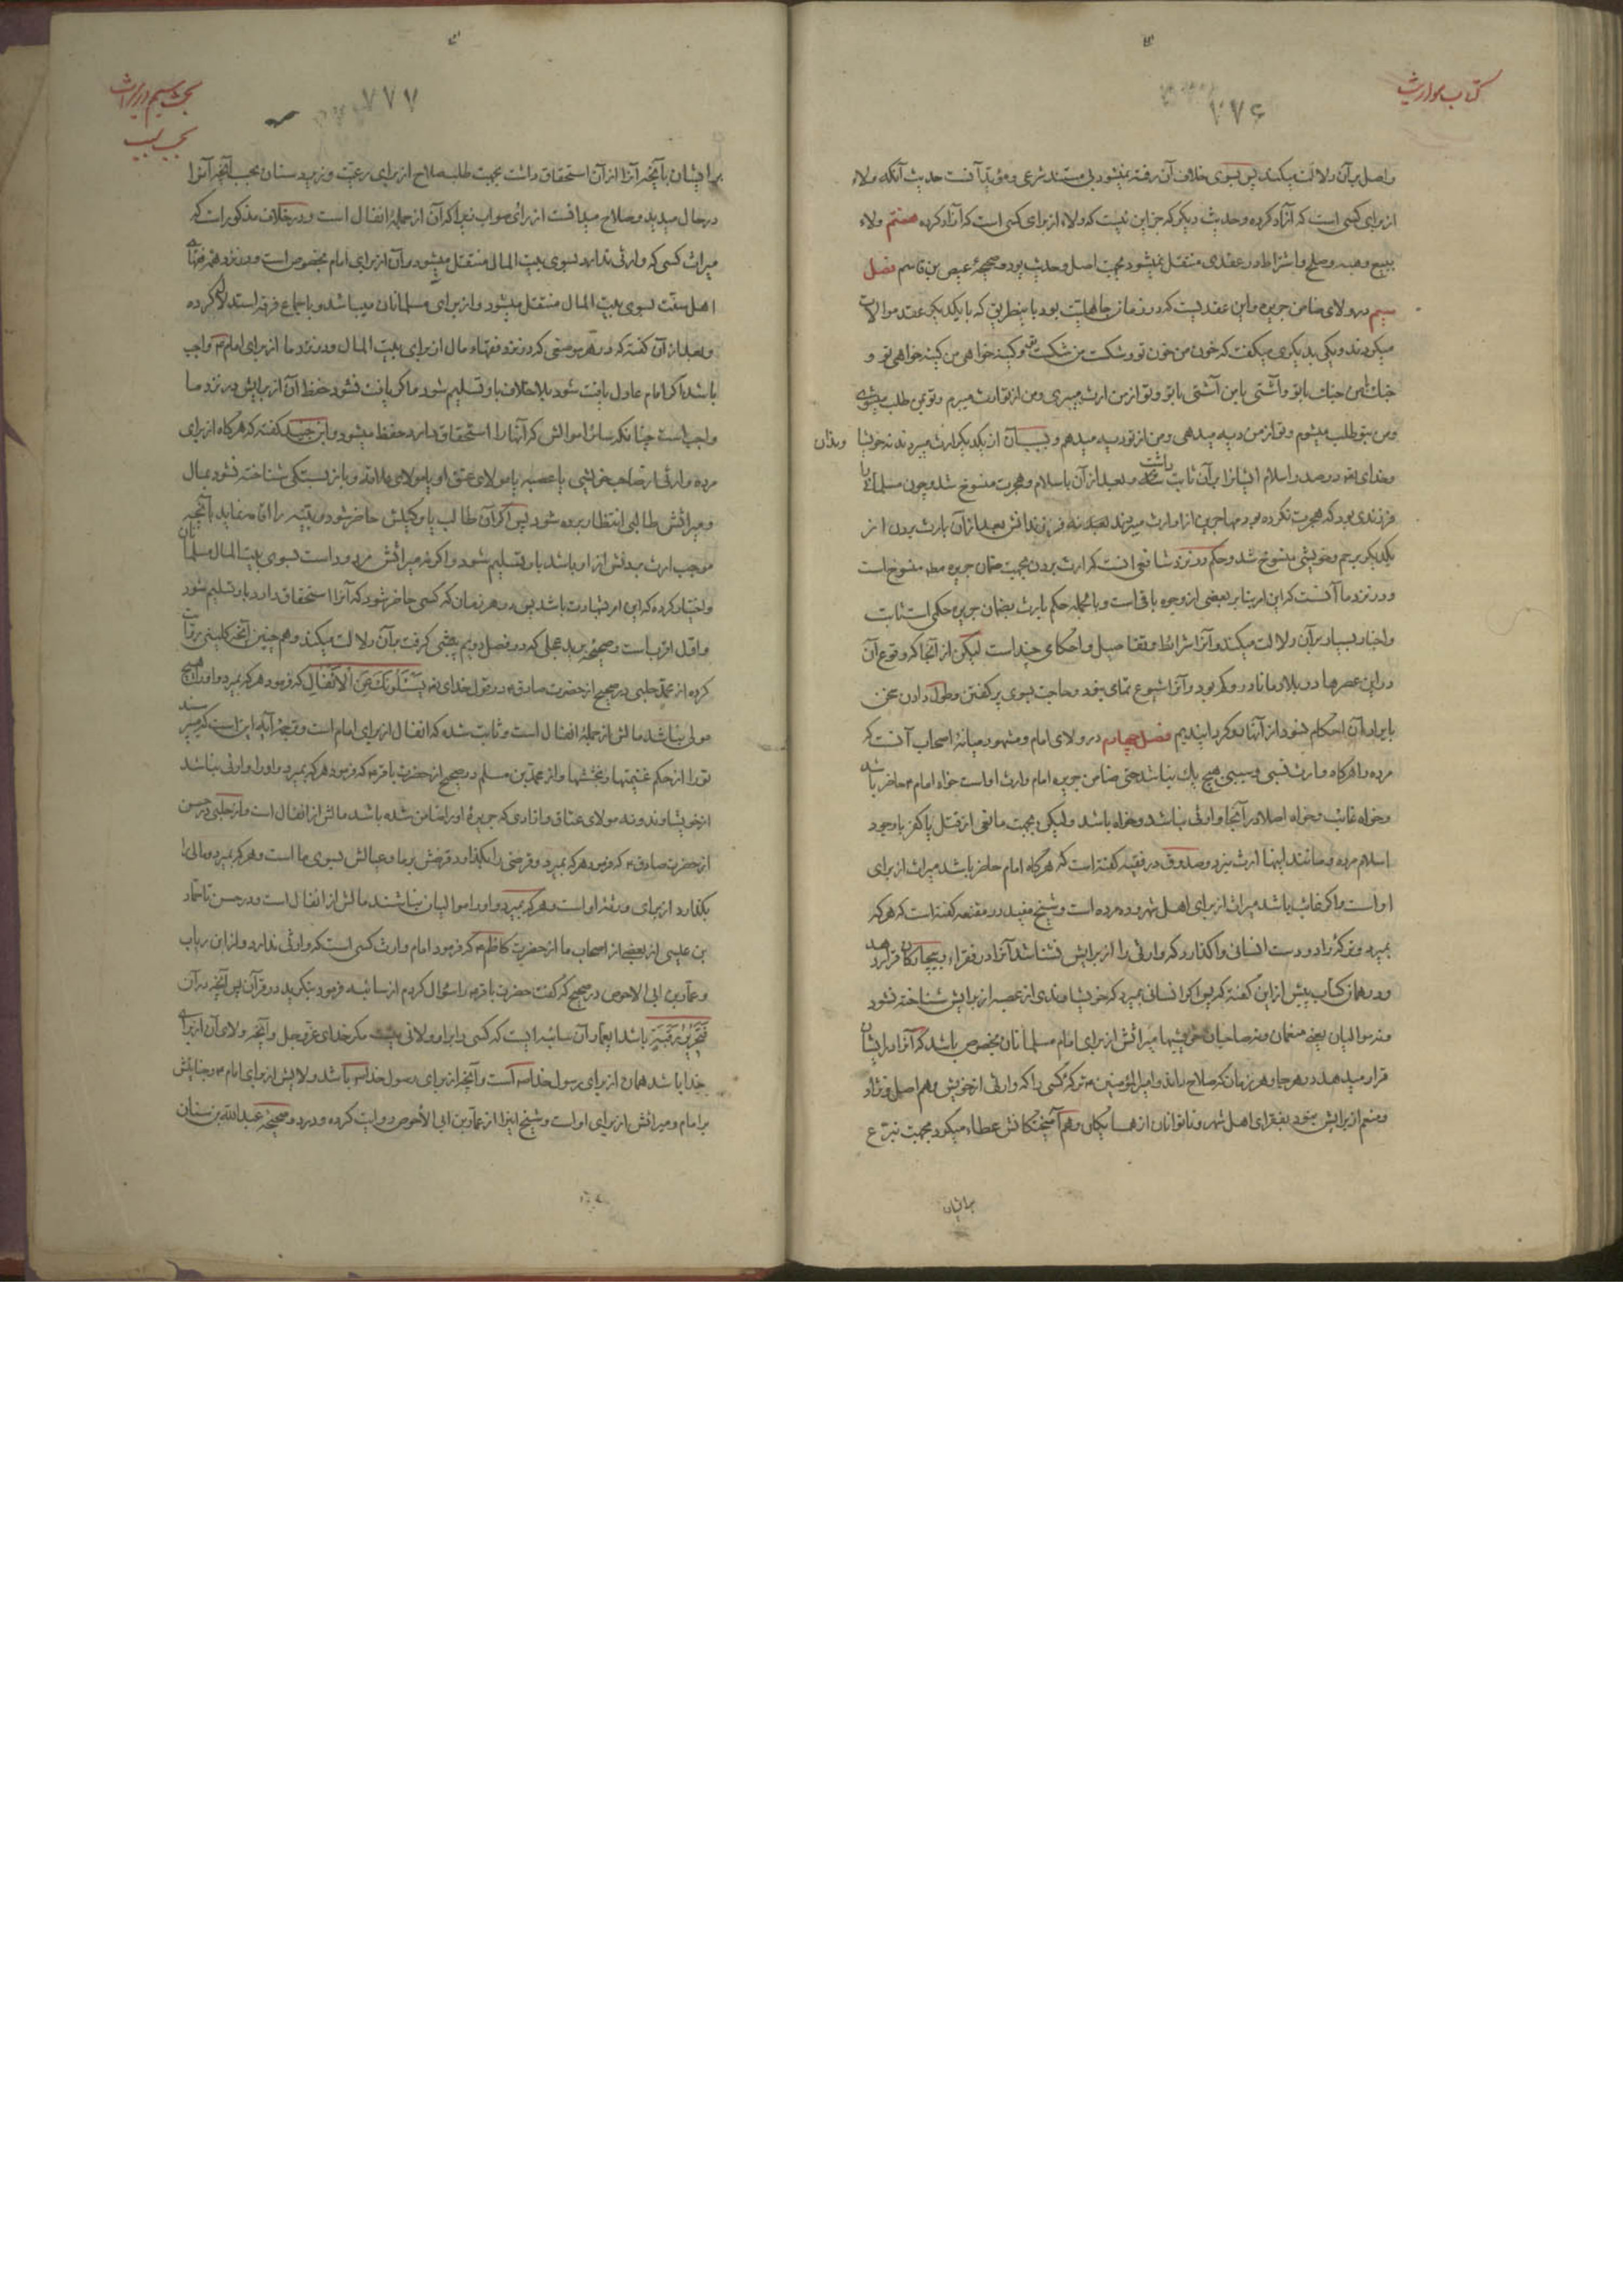 کتاب مواریث
۷۷۶
واصل بر آن دلالت میکند پس بسوی خلاف آن رفته نمیشود بی مستند شرعی و مؤید آنست حدیث آنکه ولاء
از برای کسی است که آزاد کرده و حدیث دیگر که جز این نیست که ولاء از برای کسی است که آزاد کرده هستم ولاء
ببیع و هبه و صلح و اشتراط در عقدی منتقل نمیشود بجهت اصل و حدیث بود و صحیحهٔ عیص بن قاسم فصل
سیم در ولای ضامن جریره و این عقدیست که در زمان جاهلیت بود باینطریق که با یکدیگر عقد موالات
میکردند و یکی بدیگری میگفت که خون من خون تو و شکست من شکست تو و کینه خواهی من کینه خواهی تو و
جنک با من جنک با تو و آشتی با من آشتی با تو و تو از من ارث میبری و من از تو ارث میبرم و تو بمن طلب میشوی
و من بتو طلب میشوم و تو از من دیه میدهی و من از تو دیه میدهم و بسبب آن از یکدیگر ارث میبردند نه خویشا
وندان
و خدای تعه در صدر اسلام ایشانرا بر آن ثابت داشت و بعد از آن باسلام و هجرت منسوخ شد و چون مسلمانی را
فرزندی بود که هجرت نکرده بود مهاجرین از او ارث میبردند نه فرزندانش بعد از آن بارث بردن از
یکدیگر برحم و خویشی منسوخ شد و حکم در نزد شافعی آنست که ارث بردن بجهت ضمان جریره مطه منسوخ است
و در نزد ما آنست که این ارث بنابر بعضی از وجوه باقی است و بالجمله حکم بارث بضمان جریره حکمی است ثابت
و اخبار بسیار بر آن دلالت میکند و آنرا شرائط و تفاصیل و احکامی چند است لیکن از آنجا که وقوع آن
در این عصرها در بلاد ما نادر و کم بود و آنرا شیوع تمامی نبود و حاجت بسوی پر کفتن و طول دادن سخن
بایراد آن احکام نبود از آنها رو کردانیدیم فصل چهارم در ولای امام و مشهور میانهٔ اصحاب آنست که
مرده را هرکاه وارث نسبی و سببی هیچ یک نباشد حتی ضامن جریره امام وارث اوست خواه امام ع حاضر باشد
و خواه غائب و خواه اصلا در آنجا وارثی نباشد و خواه باشد ولیکن بجهت مانعی از قتل یا کفر با وجود
اسلام مرده و مانند اینها ارث نبرد و صدوق در فقیه کفته است که هرکاه امام حاضر باشد میراث از برای
اوست و اگر غائب باشد میراث از برای اهل شهر مرده است و شیخ مفید در مقنعه کفته است که هر که
بمیرد و ترکهٔ را در دست انسانی واکذارد که وارثی را از برایش نشناسد آنرا در فقراء و بیچارکان قرار دهد
و در همان کتاب پیش از این کفته که پس اگر انسانی بمیرد که خویشاوندی از عصبه از برایش شناخته نشود
و نه موالیان یعنی منعمان و نه صاحبان خویشیها میراثش از برای امام مسلمانان مخصوص باشد که آنرا در ایشان
قرار میدهد در هر جا و هر زمان که صلاح داند و امیر المؤمنین ع ترکهٔ کسی را که وارثی از خویش و هم اصل و نژاد
و منعم از برایش نبود بفقرای اهل شهر و ناتوانان از همسایکان و هم آمیختکانش عطاء میکرد بجهت تبرع
برایشان
بحث سیم در میراث
بحسب سبب
۷۷۷
برایشان بآنچه آنرا از آن استحقاق داشت بجهت طلب صلاح از برای رعیت و زیردستان بحسب آنچه آنرا
در حال میدید و صلاح میدانست از رأی صواب زیرا که آن از جملهٔ انفال است و در خلاف مذکور است که
میراث کسی که وارثی ندارد بسوی بیت المال منتقل میشود و آن از برای امام مخصوص است و در نزد همهٔ فقهای
اهل سنت بسوی بیت المال منتقل میشود و از برای مسلمانان میباشد و باجماع فرقه استدلال کرده
و بعد از آن کفته که در هر موضعی که در نزد فقهاء مال از برای بیت المال و در نزد ما از برای امام ع واجب
باشد اگر امام عادل یافت شود بلا خلاف باو تسلیم شود و اگر یافت نشود حفظ آن از برایش در نزد ما
واجب است چنانکه سائر اموالش که آنها را استحقاق دارد حفظ میشود و ابن جنید کفته که هرکاه از برای
مرده وارثی از صاحب خویشی یا عصبه یا مولای عتق او یا مولای ولاء و یا بزیستگی شناخته نشود بمال
و میراثش طالبی انتظار برده شود پس اگر آن طالب یا وکیلش حاضر شود و بینه را اقامه نماید بآنچه
موجب ارث بردنش از او باشد باو تسلیم شود و اگر نه میراثش مردود است بسوی بیت المال مسلمانان
و اختیار کرده که این امر بشهادت باشد پس در هر زمان که کسی حاضر شود که آنرا استحقاق دارد باو تسلیم شود
و اول اقرب است و صحیحهٔ برید عجلی که در فصل دویم پیشی کرفت بر آن دلالت میکند و هم چنین آنچه کلینی روایت
کرده از محمد حلبی در صحیح از حضرت صادق ع در قول خدای تعه یَسْئَلُونَکَ عَنِ الْاَنْفَالِ که فرمود هر که بمیرد و او را هیچ
مولی نباشد مالش از جملهٔ انفال است و ثابت شده که انفال از برای امام است و ترجمهٔ آیه این است که میپرسند
تو را از حکم غنیمتها و بخششها و از محمد بن مسلم در صحیح از حضرت باقر ع که فرمود هر که بمیرد و او را وارثی نباشد
از خویشاوند و نه مولای عتاق و نادی که جریرهٔ او را ضامن شده باشد مالش از انفال است و از حلبی در حسن
از حضرت صادق ع که فرمود هر که بمیرد و قرضی را بکذارد قرضش بر ما و عیالش بسوی ما است و هر که بمیرد و مالی را
بکذارد از برای ورثهٔ او است و هر که بمیرد و او را موالیان نباشند مالش از انفال است و در حسن تا حماد
بن عیسی از بعضی از اصحاب ما از حضرت کاظم ع که فرمود امام وارث کسی است که وارثی ندارد و از ابن رباب
و عمار بن ابی الاحوص در صحیح که کفت حضرت باقر ع را سؤال کردم از سائبه فرمود بنکرید در قرآن پس آنچه در آن
فَتَحْرِیرُ رَقَبَةٍ باشد ای عمار آن سائبه ایست که کسی را بر او ولائی نیست مکر خدای عز و جل و آنچه ولای آن از برای
خدا باشد همان از برای رسول خدا ص است و آنچه از برای رسول خدا ص باشد ولایش از برای امام ع و جنایتش
بر امام و میراثش از برای او است و شیخ اینرا از عمار بن ابی الاحوص روایت کرده و در دو صحیحهٔ عبدالله بن سنان